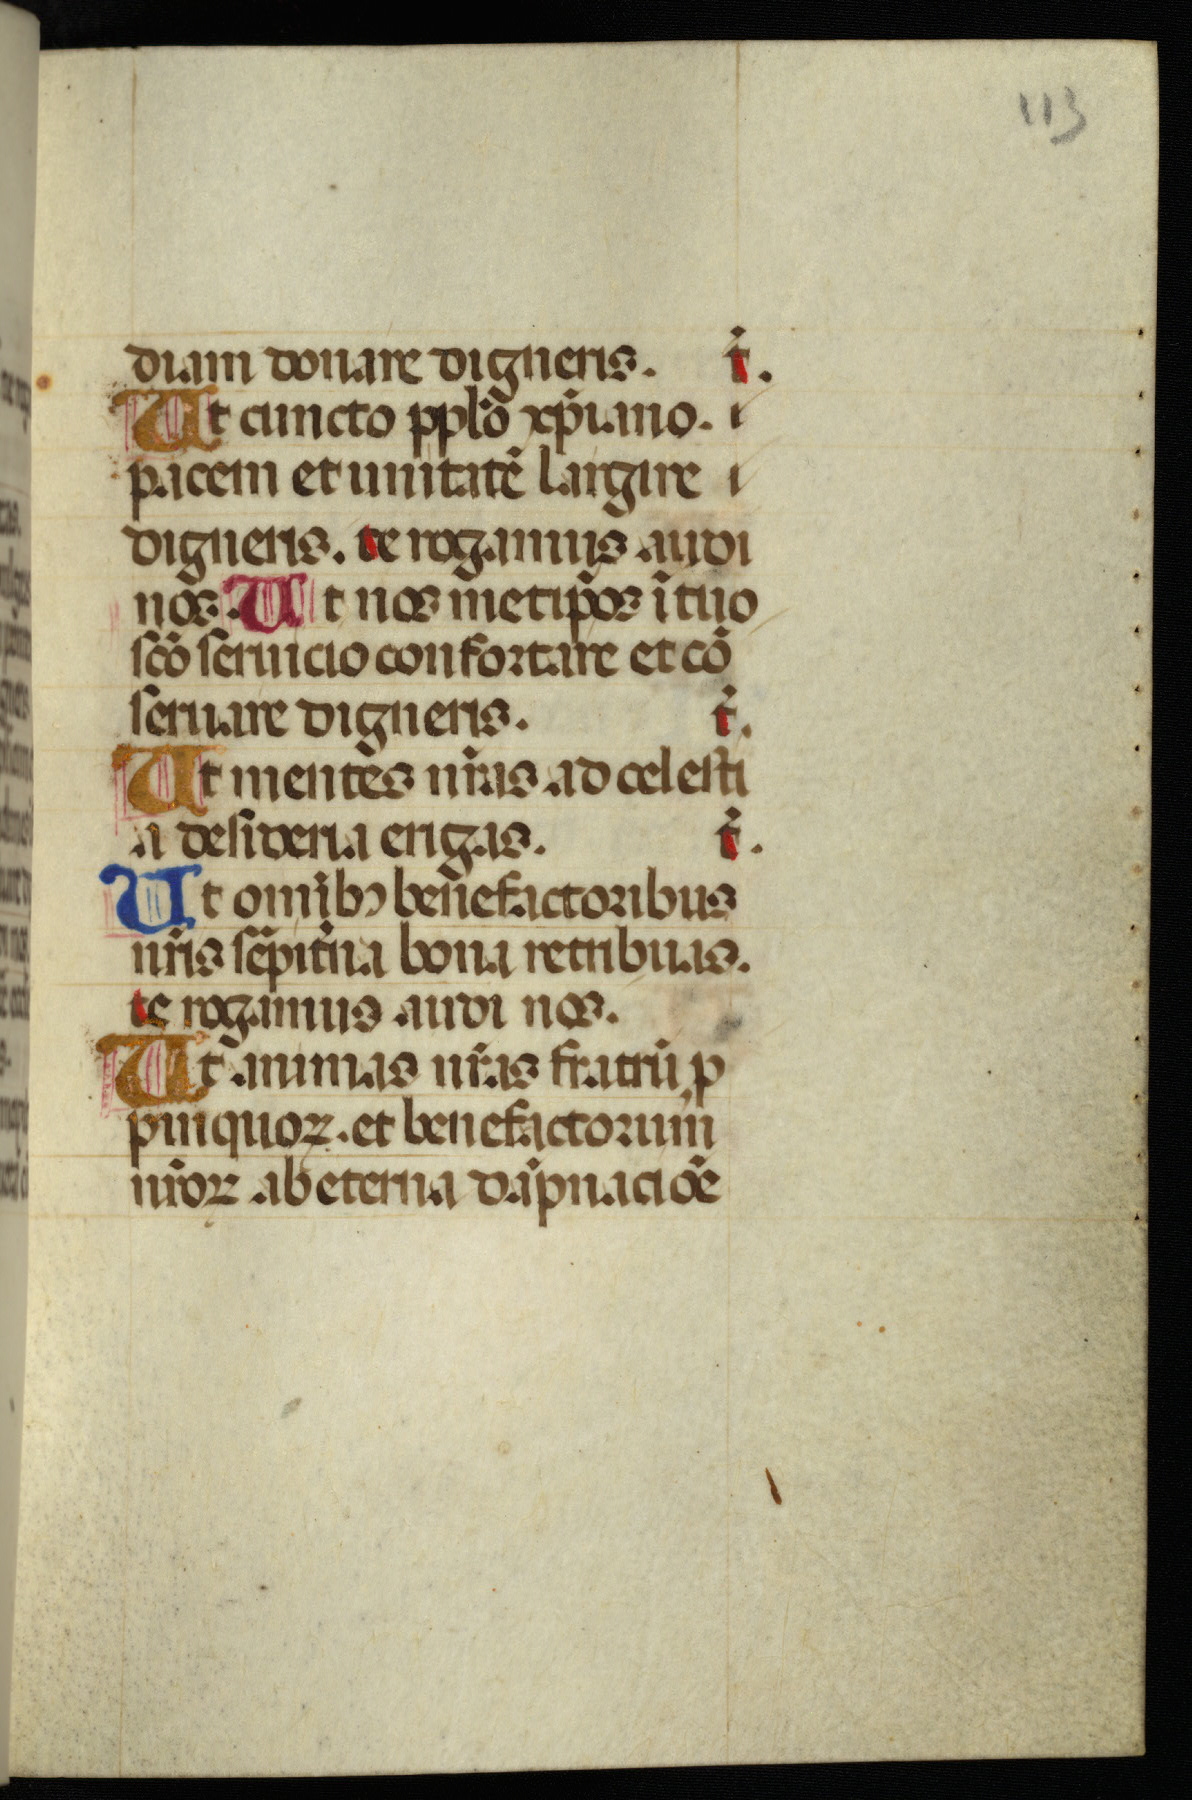 113
diam donare digneris. t̄.
Ut cuncto pplō xp̄iano. i
pacem et unitatē largire i
digneris. te rogamus audi
nos. Ut nos metip̄os ī tuo
scō seruicio confortare et cō
seruare digneris. t̄.
Ut mentes nr̄as ad celesti
a desideria erigas. t̄.
Ut omībꝰ benefactoribus
nr̄is sēpit̄na bona retribuas.
te rogamus audi nos.
Ut animas nr̄as fratrū, p
pinquoꝝ. et benefactorum
nr̄oꝝ ab eterna dāpnaciōe